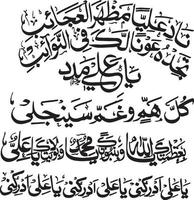 ناد علیا مظهر العجائب
تجده عونا لک فی النوائب
یا علی مدد
کل هم و غم سینجلی
بعظمتک یا الله و بنبوتک یا محمد و بولایتک یا علی
یا علی ادرکنی یا علی ادرکنی یا علی ادرکنی